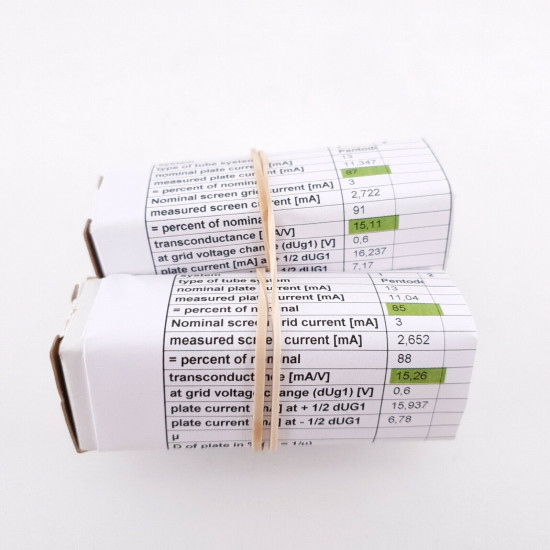 type of tube system Pentode
nominal plate current [mA] 13
measured plate current [mA] 11,347
= percent of nominal 87
Nominal screen grid current [mA] 3
measured screen current [mA] 2,722
= percent of nominal 91
transconductance [mA/V] 15,11
at grid voltage change (dUg1) [V] 0,6
plate current [mA] at + 1/2 dUG1 16,237
7,17
system 1 2
type of tube system Pentode
nominal plate current [mA] 13
measured plate current [mA] 11,04
= percent of nominal 85
Nominal screen grid current [mA] 3
measured screen current [mA] 2,652
= percent of nominal 88
transconductance [mA/V] 15,26
at grid voltage change (dUg1) [V] 0,6
plate current [mA] at + 1/2 dUG1 15,937
plate current [mA] at - 1/2 dUG1 6,78
µ
D of plate in % = 1/µ)